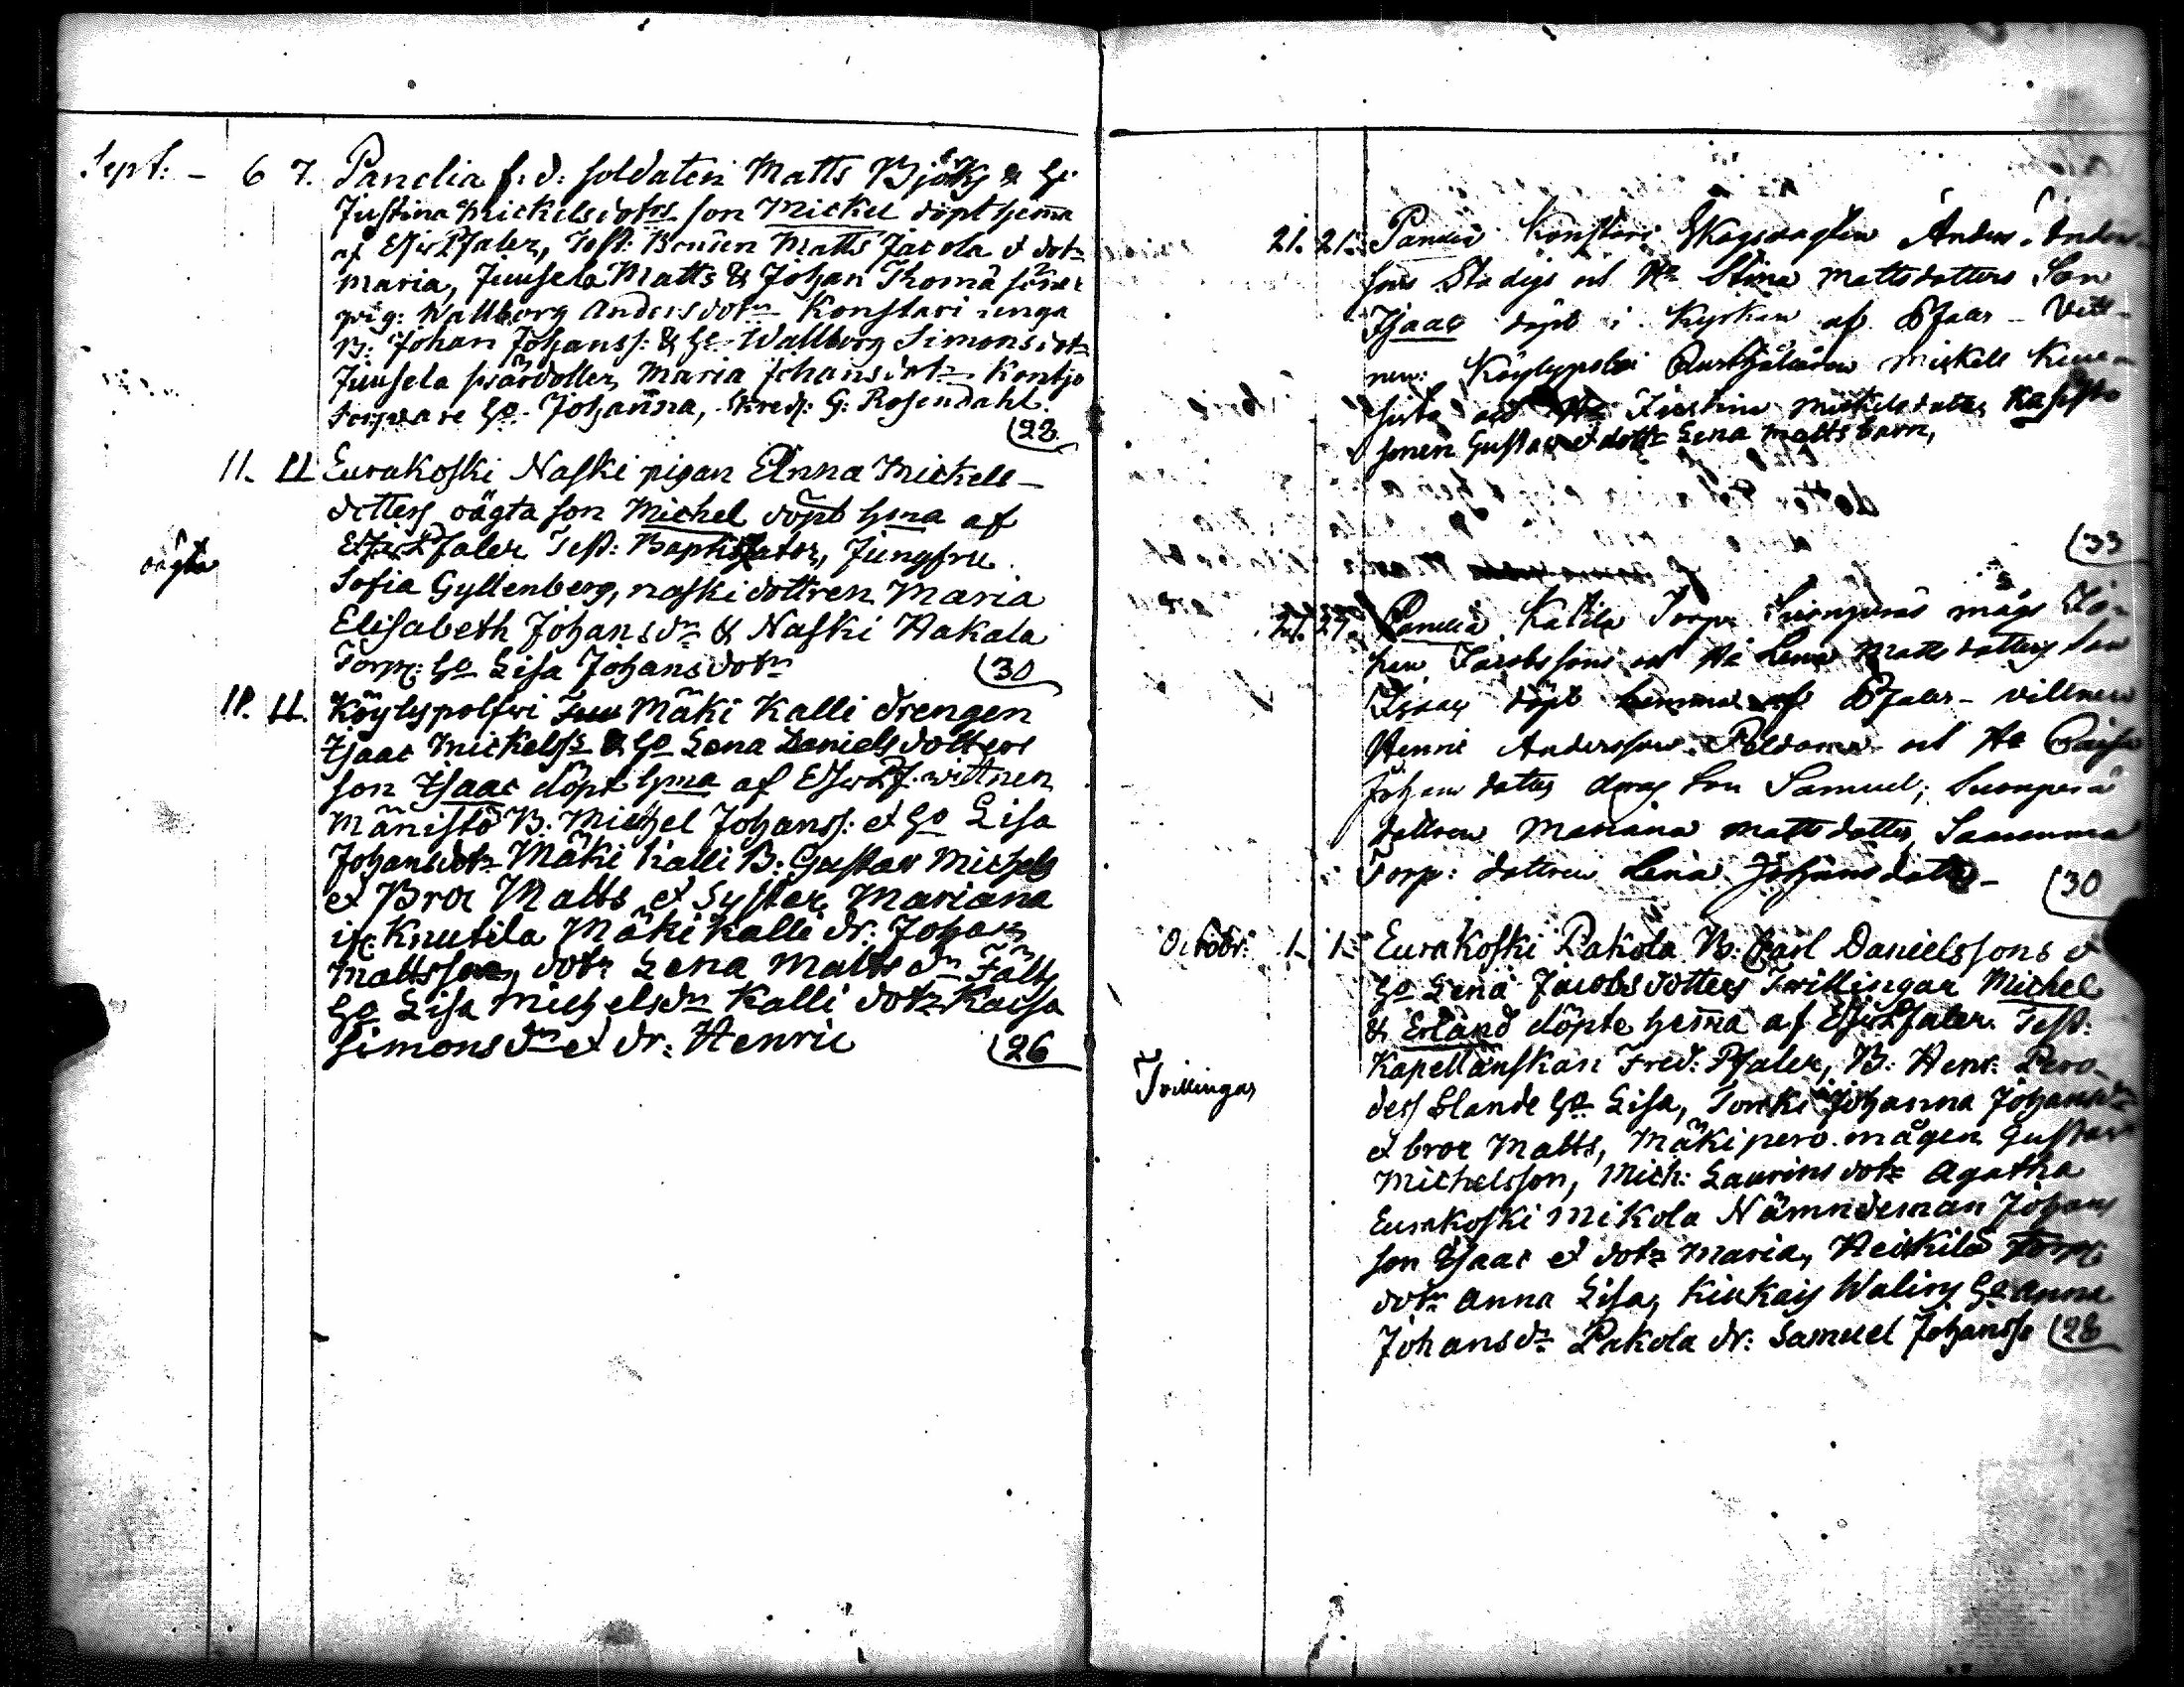 Sept: - 6 7. Panelia f. d. soldaten Matts Björks & hu
Justina Mickelsdotrs son Mickel döpt hema
af EHw Pfaler, Test: Bonden Matts Jacola & dotr
Maria, Juusela Matts & Johan Thomä söner
pig: Wallborg Andersdotr Konstari unga
B: Johan Johanss: & Hu Wallborg Simonsdotr
Juusela dotter Maria Johansdotr Kontjo
torpare Hu Johanna, Skred: G: Rosendahl.
(28
11. 11 Eurakoski Naski pigan Anna Mickels-
dotters oägta son Michel döpt hma af
oägta Pfaler Test: Baptisator, Jungfru
Sofia Gyllenberg, naski dottren Maria
Elisabeth Johansdr & Naski Hakala
Torp: Hu Lisa Johansdotr (30
11. 11. Köylypolfvi Mäki Kalli drengen
Isaac Mickelss & Hu Lena Daniels dotters
son Isaac döpt hma af wittnen
Mänistö B: Michel Johanss: et Hu Lisa
Johansdotr Mäki Kalli B: Gustav Michels
et Bror Matts et Syster Mariana
Knutila Mäki Kalli dr: Johan
Mattsson, dotr Lena Matts dr Fält
Hu Lisa Michelsdr Kalli dotr Kaisa
Simonsdr et dr: Henric (26
21. 21. Panelia Konstari Skogvagten Anders Anders-
sons Stadigs och Hu Stina Mattsdotters Son
Isaac döpt i Kyrkan af Pfaler - Vitt-
nen: Köylypolvi Mickell
och Justina Mickelsdotter
sonen Gustav et dottr Lena Matts barn,
(33
27. Panelia Katila Torp: Suonperäs mågs Jo-
han Jacobssons och Hu Lena Mattsdotters Son
Isaac döpt hemma af Pfaler - vittnen
Henric Andersson och Hu Caisa
Johans dotter deras Son Samuel; Suonperä
dottren Mariana Mattsdotter,
Torp: dottren Lena Johansdotter - (30
Octobr: 1. 1. Eurakoski Pakola B: Carl Danielssons &
Hu Lena Jacobsdotters Tvillingar Michel
& Erland döpte hemma af Pfaler. Test:
Tvillingar Kapellanskan Fred: Pfaler, B: Henr: Pero
dess Hu Lisa, Torki Johanna Johansdr
et bror Matts, Mäkipero mågen Gustav
Michelsson, Mich: Laurins dotr Agatha
Eurakoski Mikola Nämndeman Johans
son Isaac et dotr Maria, Heikilä Torp:
dotr Anna Lisa, Kiukais Hu Anna
Johansdr Pakola dr: Samuel Johanss (28